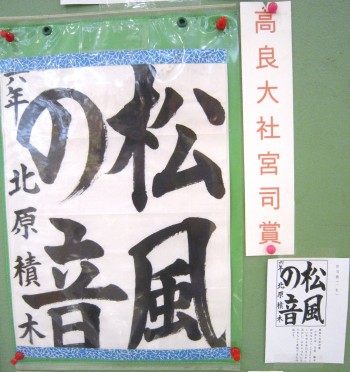 松風
の音
六年 北原積木
高良大社宮司賞
松風
の音
六年 北原積木